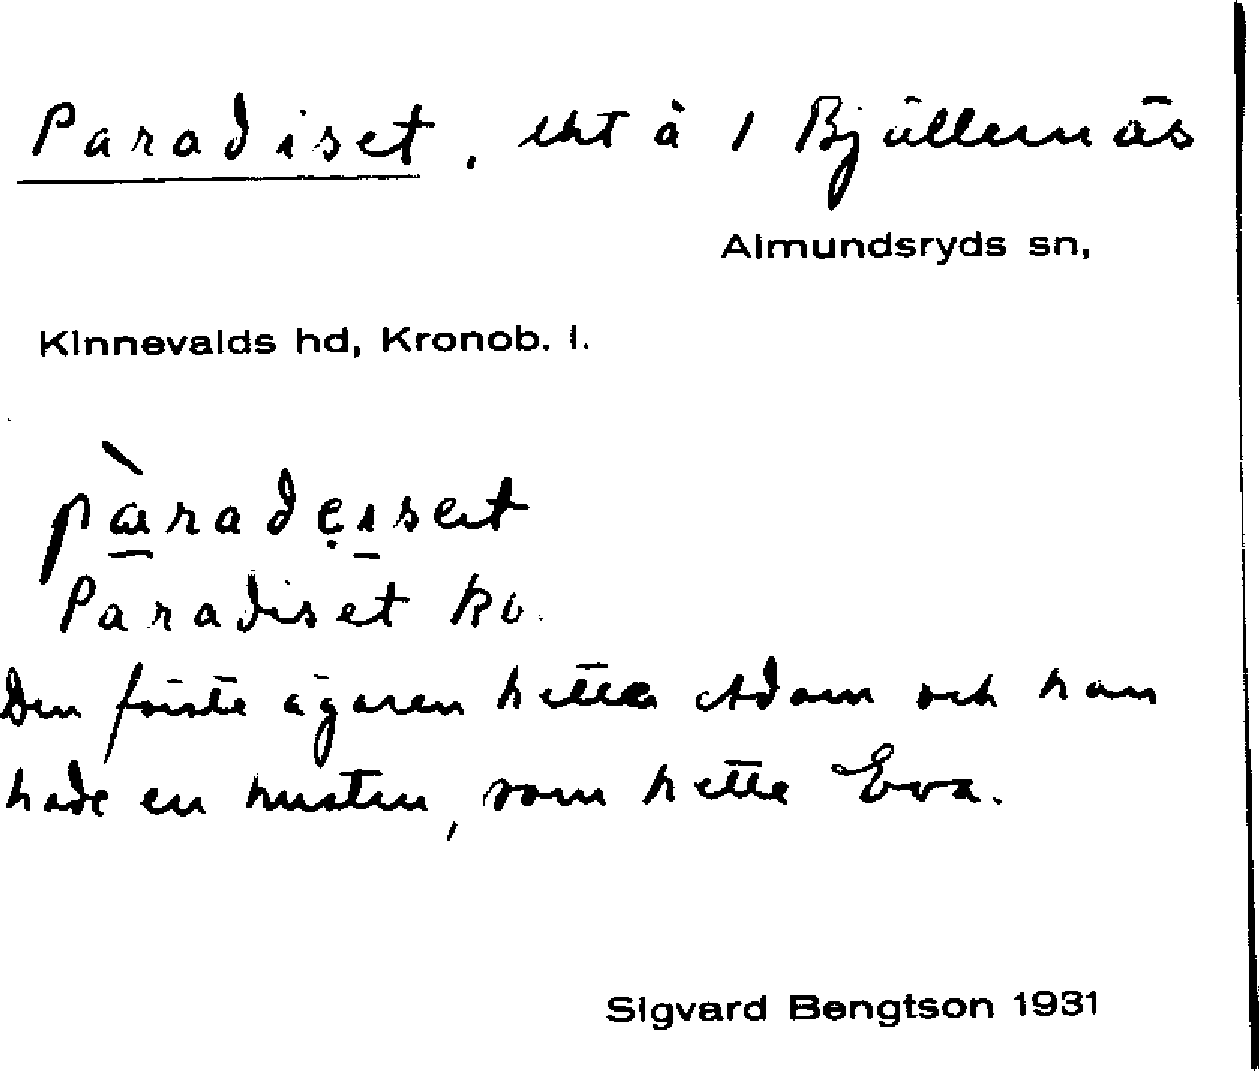 Paradiset, lht å 1 Bjällernäs
Almundsryds sn,
Kinnevalds hd, Kronob. l.
Paradiset ko.
Den förste ägaren hette Adam och han
hade en hustru, som hette Eva.
Sigvard Bengtson 1931